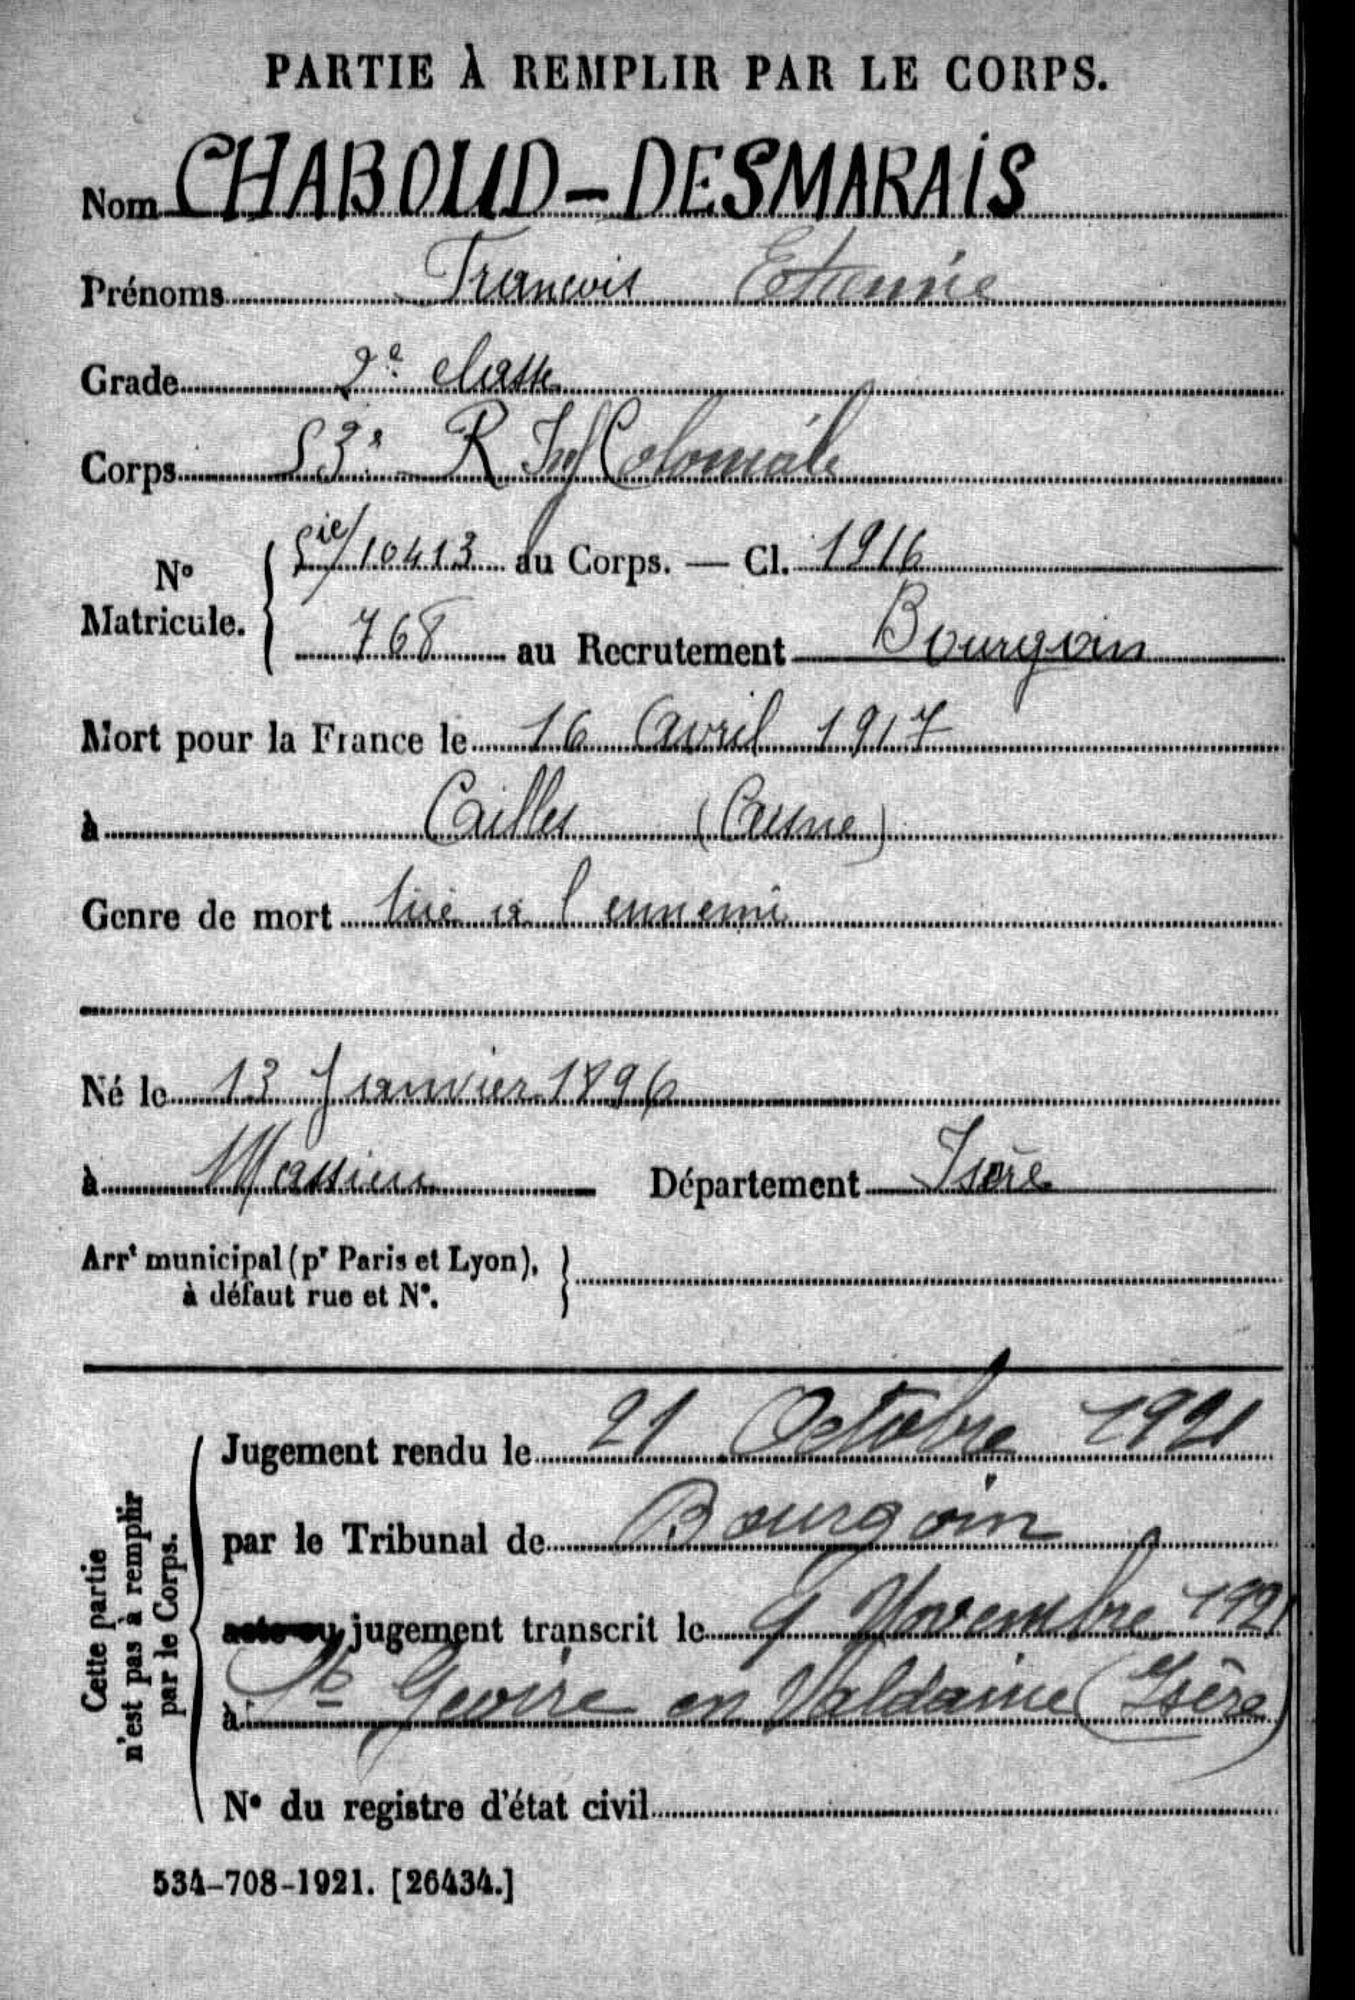 PARTIE À REMPLIR PAR LE CORPS.
Nom CHABOUD-DESMARAIS
Prénoms François Etienne
Grade 2e classe
Corps 53e R Inf Coloniale
N° Matricule. { Sie/10413 au Corps. — Cl. 1916
768 au Recrutement Bourgoin
Mort pour la France le 16 Avril 1917
à Ailles (Aisne)
Genre de mort tué à l'ennemi
Né le 13 Janvier 1896
à Massieu Département Isère
Arrt municipal (pr Paris et Lyon), à défaut rue et N°. }
Cette partie n'est pas à remplir par le Corps.
Jugement rendu le 21 Octobre 1921
par le Tribunal de Bourgoin
acte ou jugement transcrit le 9 Novembre 1921
à St Geoire en Valdaine (Isère)
N° du registre d'état civil
534-708-1921. [26434.]